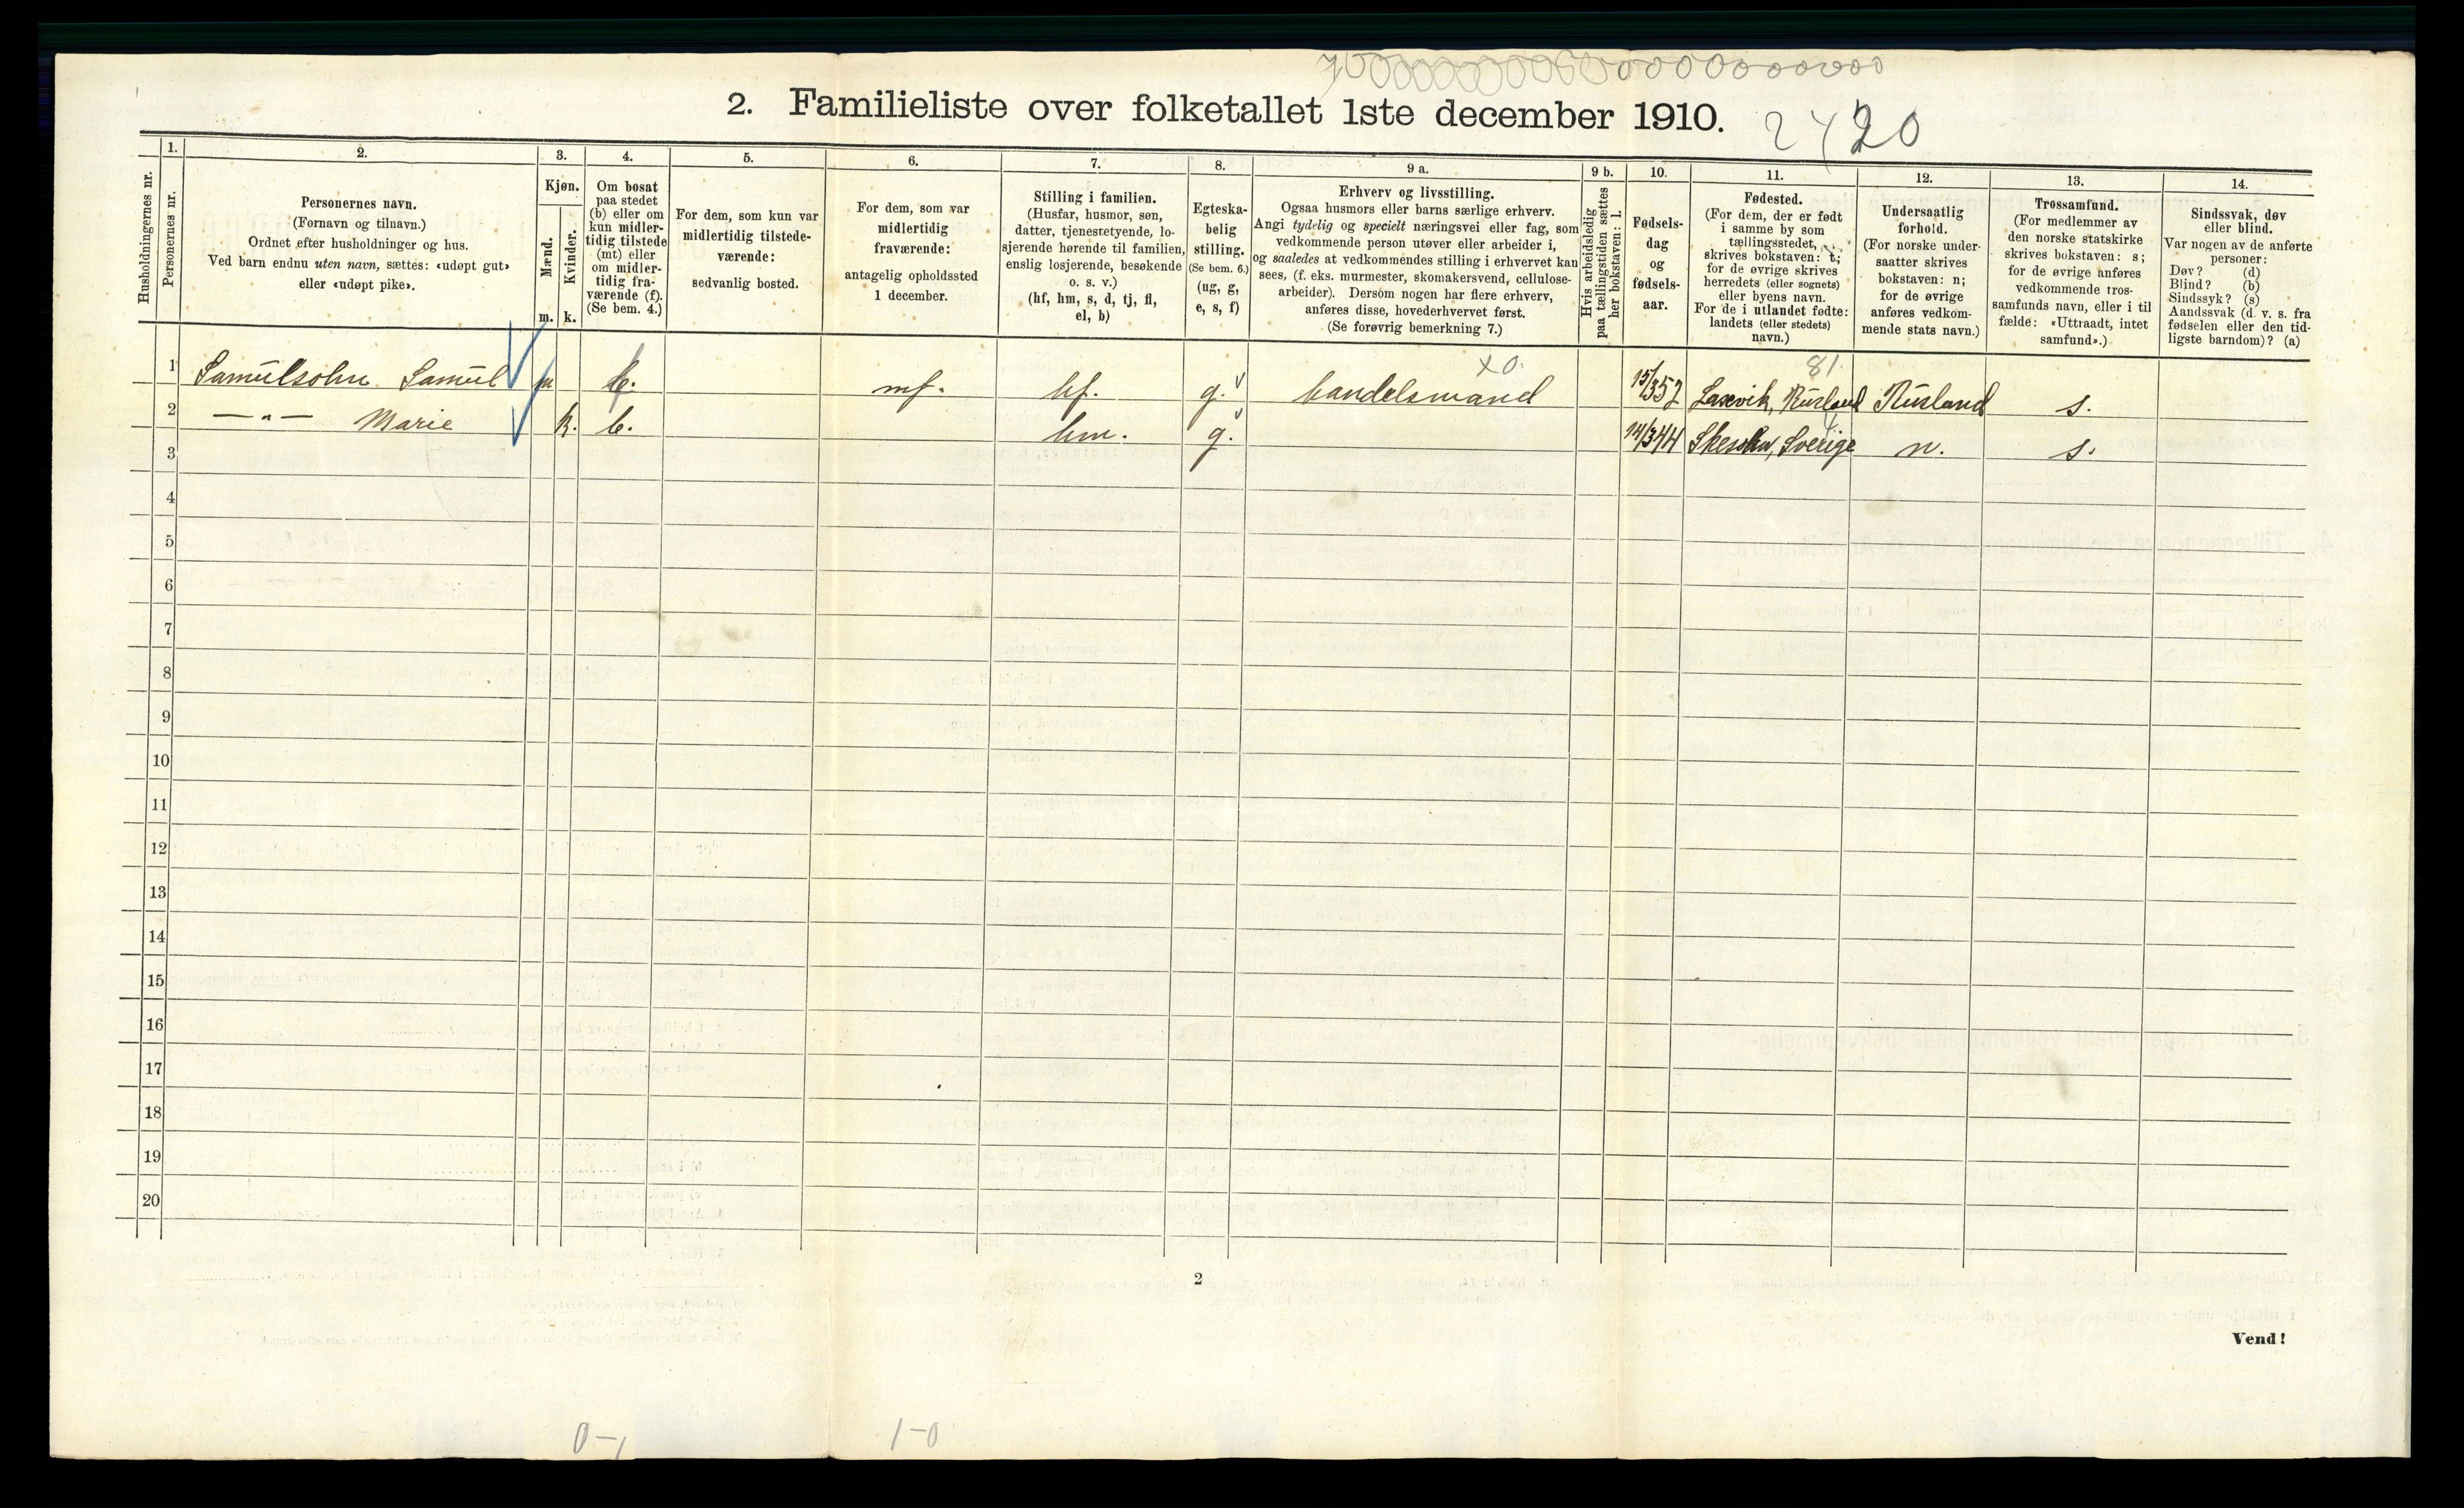 2. Familieliste over folketallet 1ste december 1910.
2420
Husholdningernes nr.
1.
Personernes nr.
2.
Personernes navn.
(Fornavn og tilnavn.)
Ordnet efter husholdninger og hus.
Ved barn endnu uten navn, sættes: «udøpt gut»
eller «udøpt pike».
3.
Kjøn.
Mænd.
Kvinder.
m. k.
4.
Om bosat
paa stedet
(b) eller om
kun midler-
tidig tilstede
(mt) eller
om midler-
tidig fra-
værende (f).
(Se bem. 4.)
5.
For dem, som kun var
midlertidig tilstede-
værende:
sedvanlig bosted.
6.
For dem, som var
midlertidig
fraværende:
antagelig opholdssted
1 december.
7.
Stilling i familien.
(Husfar, husmor, søn,
datter, tjenestetyende, lo-
sjerende hørende til familien,
enslig losjerende, besøkende
o. s. v.)
(hf, hm, s, d, tj, fl,
el, b)
8.
Egteska-
belig
stilling.
(Se bem. 6.)
(ug, g,
e, s, f)
9 a.
Erhverv og livsstilling.
Ogsaa husmors eller barns særlige erhverv.
Angi tydelig og specielt næringsvei eller fag, som
vedkommende person utøver eller arbeider i,
og saaledes at vedkommendes stilling i erhvervet kan
sees, (f. eks. murmester, skomakersvend, cellulose-
arbeider). Dersom nogen har flere erhverv,
anføres disse, hovederhvervet først.
(Se forøvrig bemerkning 7.)
9 b.
Hvis arbeidsledig
paa tællingstiden sættes
her bokstaven: l.
10.
Fødsels-
dag
og
fødsels-
aar.
11.
Fødested.
(For dem, der er født
i samme by som
tællingsstedet,
skrives bokstaven: t;
for de øvrige skrives
herredets (eller sognets)
eller byens navn.
For de i utlandet fødte:
landets (eller stedets)
navn.)
12.
Undersaatlig
forhold.
(For norske under-
saatter skrives
bokstaven: n;
for de øvrige
anføres vedkom-
mende stats navn.)
13.
Trossamfund.
(For medlemmer av
den norske statskirke
skrives bokstaven: s;
for de øvrige anføres
vedkommende tros-
samfunds navn, eller i til
fælde: «Uttraadt, intet
samfund».)
14.
Sindssvak, døv
eller blind.
Var nogen av de anførte
personer:
Døv? (d)
Blind? (b)
Sindssyk? (s)
Aandssvak (d. v. s. fra
fødselen eller den tid-
ligste barndom)? (a)
x0. 81.
1 Samulsohn Samul m b. mf. hf. g. v handelsmand 15/3 57 Rusland Rusland s.
2 —„— Marie k. b. hm. g. v 14/3 44 Sverige n. s.
3
4
5
6
7
8
9
10
11
12
13
14
15
16
17
18
19
20
2
Vend!
0-1 1-0